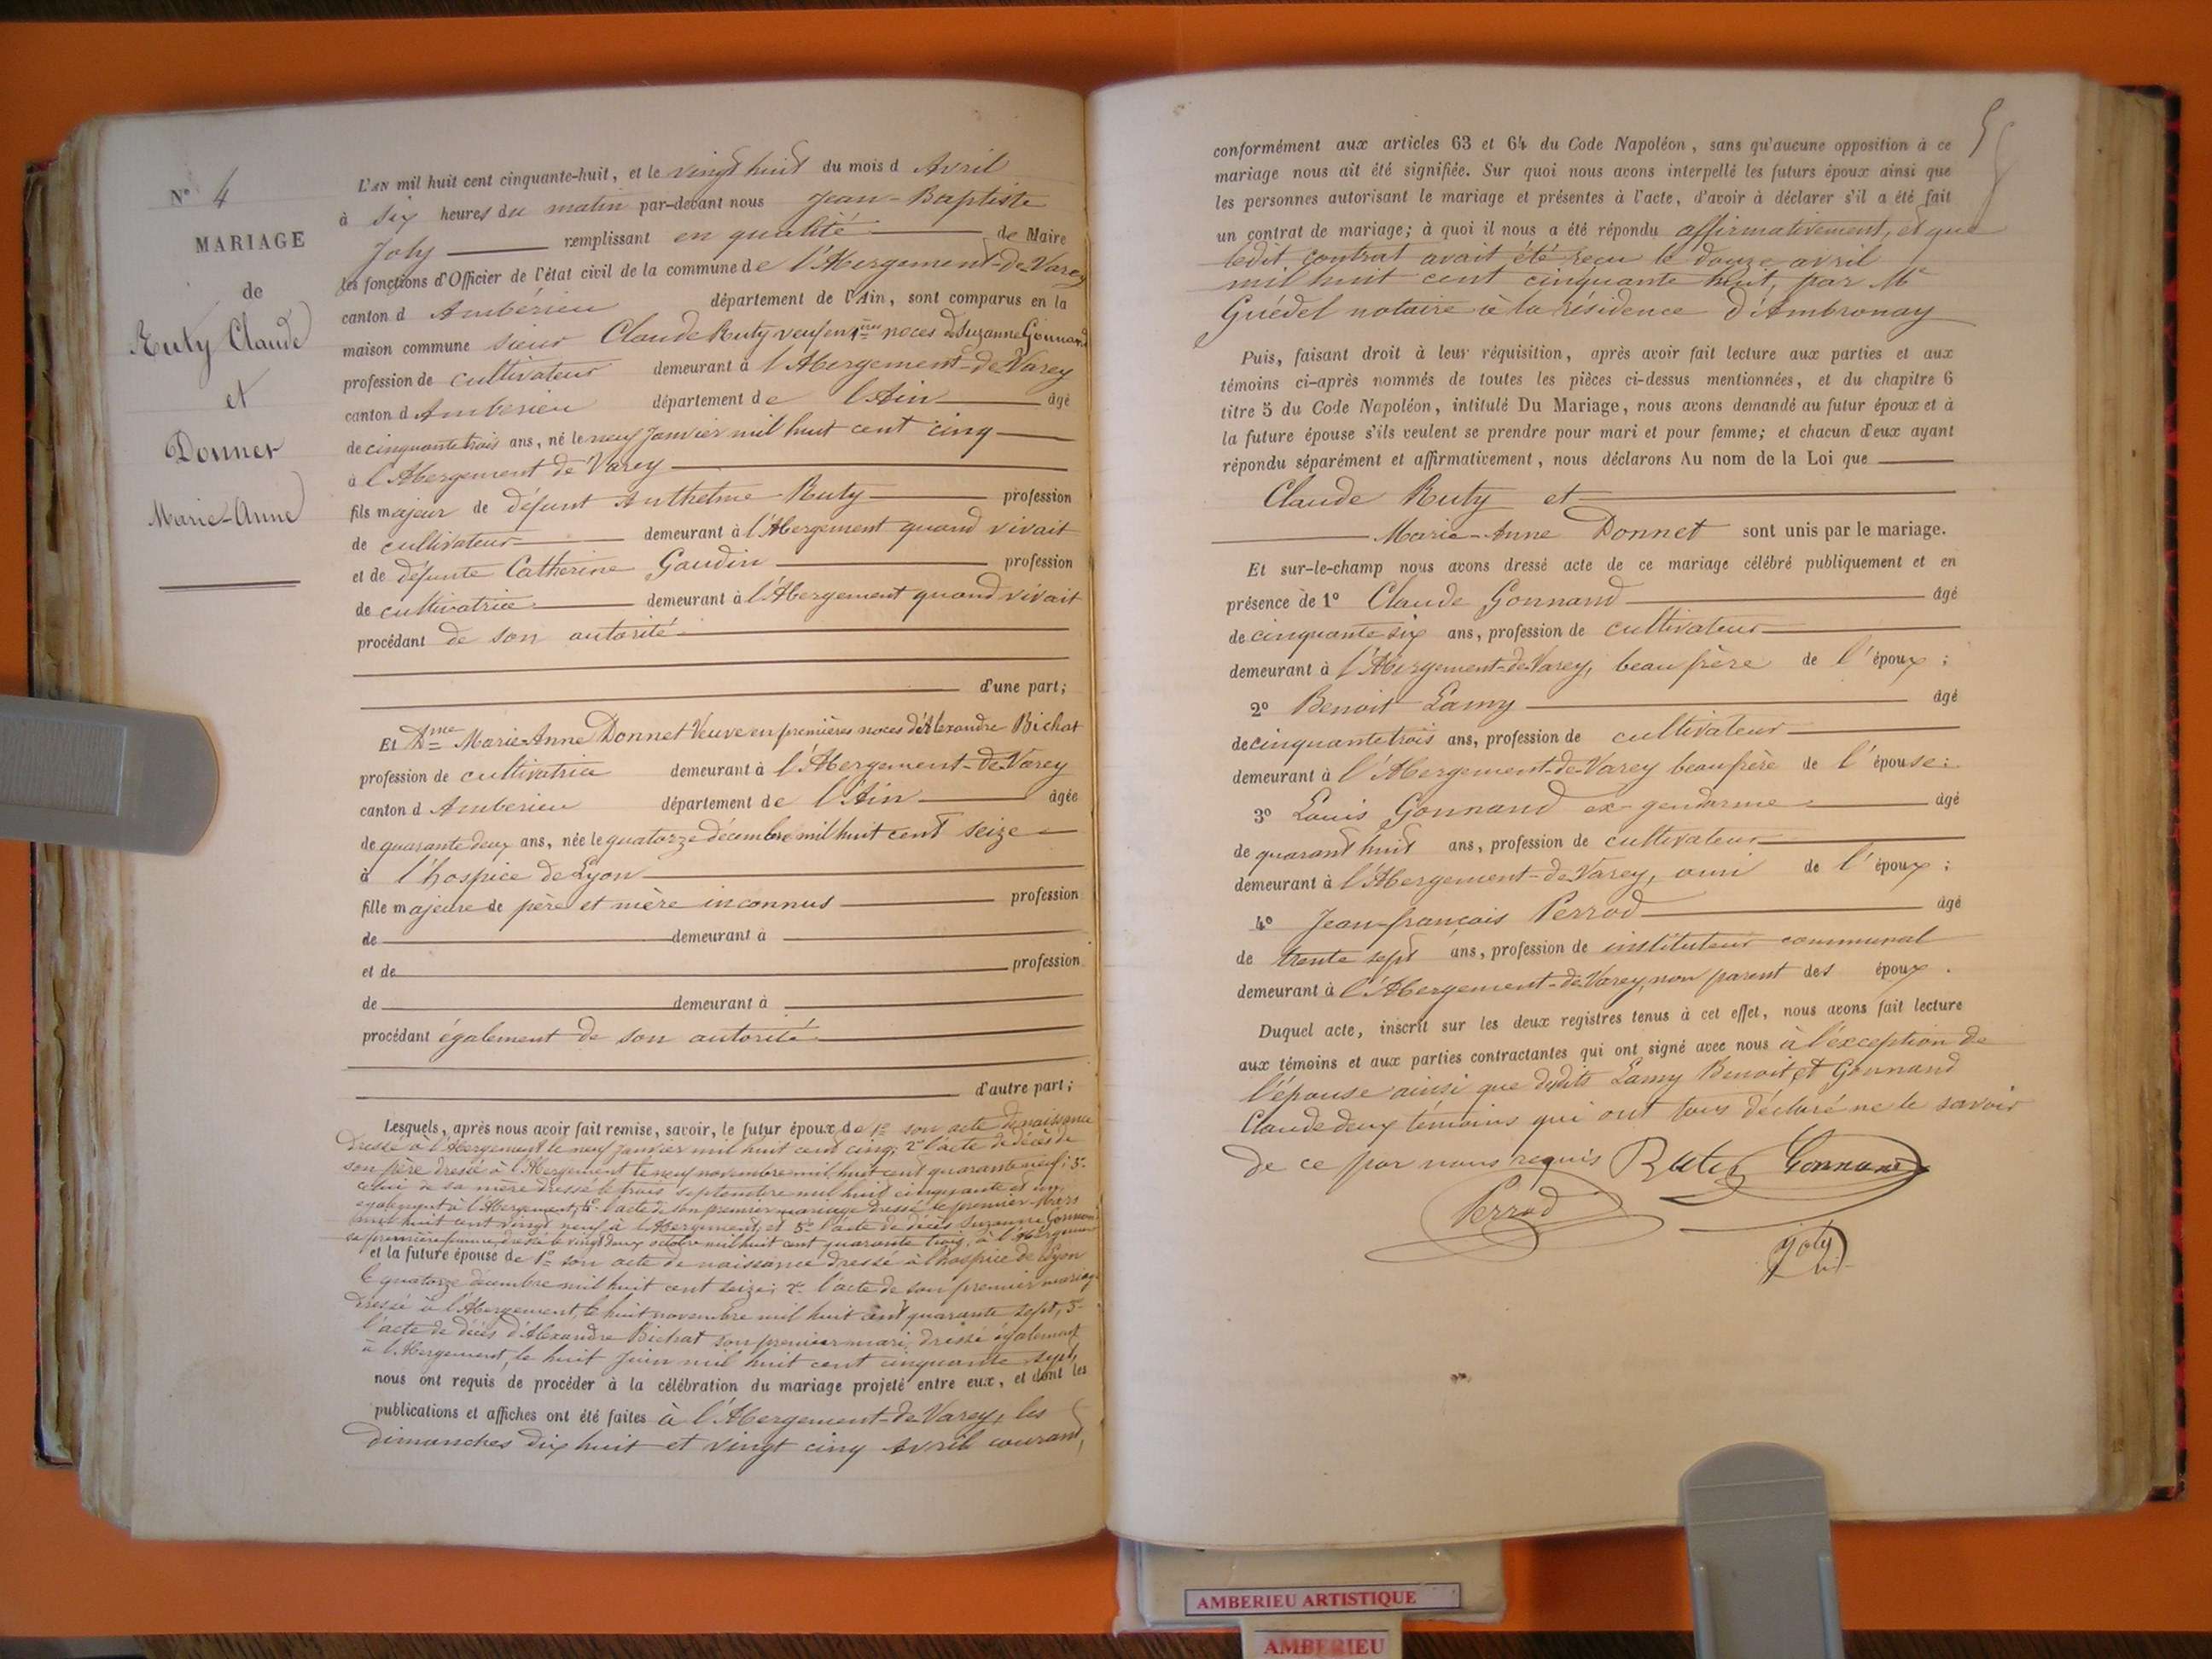 N° 4
MARIAGE
de
Ruty Claude
et
Donnet
Marie-Anne
L'AN mil huit cent cinquante-huit, et le vingt huit du mois d Avril
à six heures du matin par-devant nous Jean-Baptiste
Joly remplissant en qualité de Maire
les fonctions d'Officier de l'état civil de la commune de l'Abergement-de-Varey
canton d Ambérieu département de l'Ain, sont comparus en la
maison commune sieur Claude Ruty veuf en 1ères noces de Suzanne Gonnand
profession de cultivateur demeurant à l'Abergement-de-Varey
canton d Amberieu département de l'Ain âgé
de cinquante trois ans, né le neuf Janvier mil huit cent cinq
à l'Abergement de Varey
fils majeur de défunt Anthelme Ruty profession
de cultivateur demeurant à l'Abergement quand vivait
et de défunte Catherine Gaudin profession
de cultivatrice demeurant à l'Abergement quand vivait
procédant de son autorité
d'une part;
Et Dme Marie Anne Donnet Veuve en premières noces d'Alexandre Bichat
profession de cultivatrice demeurant à l'Abergement-de-Varey
canton d Amberieu département de l'Ain âgée
de quarante deux ans, née le quatorze décembre mil huit cent seize
à l'hospice de Lyon
fille majeure de père et mère inconnus profession
de demeurant à
et de profession
de demeurant à
procédant également de son autorité
d'autre part;
Lesquels, après nous avoir fait remise, savoir, le futur époux de 1° son acte de naissance
dressé à l'Abergement le neuf Janvier mil huit cent cinq; 2° l'acte de décès de
son père dressé à l'Abergement le neuf novembre mil huit cent quarante neuf; 3°
celui de sa mère dressé le trois septembre mil huit cinquante et un
également à l'Abergement; 4° l'acte de son premier mariage dressé le premier Mars
mil huit cent vingt neuf à l'Abergement; et 5° l'acte de décès Suzanne Gonnand
sa première femme, dressé le vingt deux octobre mil huit cent quarante trois, à l'Abergement
et la future épouse de 1° son acte de naissance dressé à l'hospice de Lyon
le quatorze décembre mil huit cent seize; 2° l'acte de son premier mariage
dressé à l'Abergement, le huit novembre mil huit cent quarante sept, 3°
l'acte de décès d'Alexandre Bichat son premier mari, dressé également
à l'Abergement, le huit Juin mil huit cent cinquante sept,
nous ont requis de procéder à la célébration du mariage projeté entre eux, et dont les
publications et affiches ont été faites à l'Abergement-de-Varey, les
dimanches dix huit et vingt cinq Avril courant,
5
conformément aux articles 63 et 64 du Code Napoléon, sans qu'aucune opposition à ce
mariage nous ait été signifiée. Sur quoi nous avons interpellé les futurs époux ainsi que
les personnes autorisant le mariage et présentes à l'acte, d'avoir à déclarer s'il a été fait
un contrat de mariage; à quoi il nous a été répondu affirmativement, et que
ledit contrat avait été reçu le douze avril
mil huit cent cinquante huit, par Me
Guédel notaire à la résidence d'Ambronay
Puis, faisant droit à leur réquisition, après avoir fait lecture aux parties et aux
témoins ci-après nommés de toutes les pièces ci-dessus mentionnées, et du chapitre 6
titre 5 du Code Napoléon, intitulé Du Mariage, nous avons demandé au futur époux et à
la future épouse s'ils veulent se prendre pour mari et pour femme; et chacun d'eux ayant
répondu séparément et affirmativement, nous déclarons Au nom de la Loi que
Claude Ruty et
Marie-Anne Donnet sont unis par le mariage.
Et sur-le-champ nous avons dressé acte de ce mariage célébré publiquement et en
présence de 1° Claude Gonnand âgé
de cinquante six ans, profession de cultivateur
demeurant à l'Abergement-de-Varey, beau frère de l'époux;
2° Benoit Lamy âgé
de cinquante trois ans, profession de cultivateur
demeurant à l'Abergement-de-Varey beau frère de l'épouse;
3° Louis Gonnand ex-gendarme âgé
de quarant huit ans, profession de cultivateur
demeurant à l'Abergement-de-Varey, ami de l'époux;
4° Jean-françois Perrod âgé
de trente sept ans, profession de instituteur communal
demeurant à l'Abergement-de-Varey, non parent des époux.
Duquel acte, inscrit sur les deux registres tenus à cet effet, nous avons fait lecture
aux témoins et aux parties contractantes qui ont signé avec nous à l'exception de
l'épouse ainsi que desdits Lamy Benoit, et Gonnand
Claude deux témoins qui ont tous déclaré ne le savoir
de ce par nous requis Ruty Gonnand
Perrod
Joly
AMBERIEU ARTISTIQUE
AMBERIEU